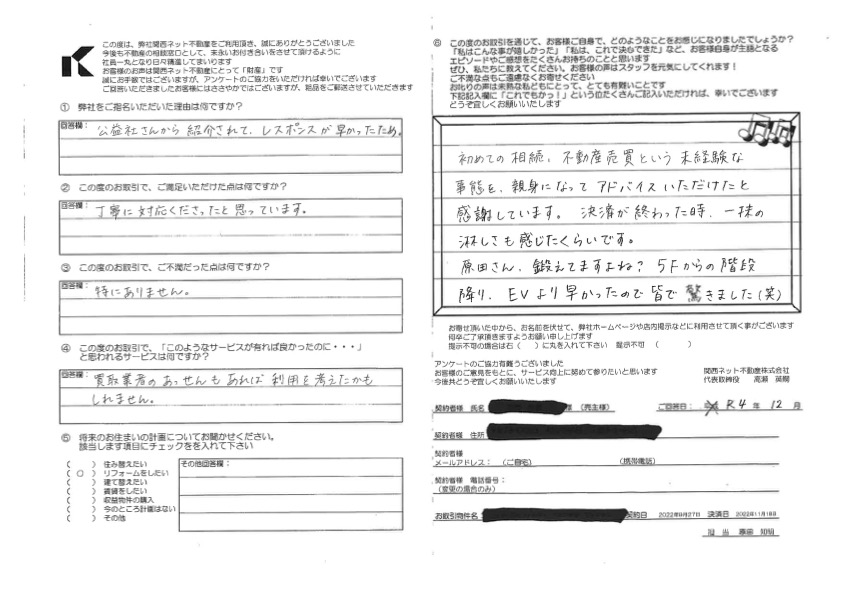 この度は、弊社関西ネット不動産をご利用頂き、誠にありがとうございました
今後も不動産の相談窓口として、末永いお付き合いをさせて頂けるように
社員一丸となり日々精進してまいります
お客様のお声は関西ネット不動産にとって「財産」です
誠にお手数ではございますが、アンケートのご協力をいただければ幸いでございます
ご回答いただきましたお客様にはささやかではございますが、粗品をご郵送させていただきます
① 弊社をご指名いただいた理由は何ですか?
回答欄:
公益社さんから紹介されて、レスポンスが早かったため。
② この度のお取引で、ご満足いただけた点は何ですか?
回答欄:
丁寧に対応くださったと思っています。
③ この度のお取引で、ご不満だった点は何ですか?
回答欄:
特にありません。
④ この度のお取引で、「このようなサービスが有れば良かったのに・・・」
と思われるサービスは何ですか?
回答欄:
買取業者のあっせんもあれば利用を考えたかも
しれません。
⑤ 将来のお住まいの計画についてお聞かせください。
該当します項目にチェックをを入れて下さい
( ) 住み替えたい
( ○ ) リフォームをしたい
( ) 建て替えたい
( ) 賃貸をしたい
( ) 収益物件の購入
( ) 今のところ計画はない
( ) その他
その他回答欄:
⑥ この度のお取引を通じて、お客様ご自身で、どのようなことをお感じになりましたでしょうか?
「私はこんな事が嬉しかった」「私は、これで決心できた」など、お客様自身が主語となる
エピソードやご感想をたくさんお持ちのことと思います
ぜひ、私たちに教えてください。お客様の声はスタッフを元気にしてくれます!
ご不満な点もご遠慮なくお寄せください
お叱りの声は未熟な私どもにとって、とても有難いことです
下記記入欄に「これでもかっ!」という位たくさんご記入いただければ、幸いでございます
どうぞ宜しくお願いいたします
初めての相続、不動産売買という未経験な
事態を、親身になってアドバイスいただけたと
感謝しています。 決済が終わった時、一抹の
淋しさも感じたくらいです。
原田さん、鍛えてますよね? 5Fからの階段
降り、EVより早かったので皆で驚きました(笑)
お寄せ頂いた中から、お名前を伏せて、弊社ホームページや店内掲示などに利用させて頂く事がございます
何卒ご了承頂きますようお願い申し上げます
掲示不可の場合は右( )に丸を入れて下さい 掲示不可 ( )
アンケートのご協力有難うございました
お客様のご意見をもとに、サービス向上に努めて参りたいと思います
今後共どうぞ宜しくお願いいたします
関西ネット不動産株式会社
代表取締役 高瀬
契約者様 氏名 様 (売主様) ご回答日: R4 年 12 月
契約者様 住所
契約者様
メールアドレス: (ご自宅) (携帯電話)
契約者様 電話番号:
(変更の場合のみ)
お取引物件名 契約日 2022年9月27日 決済日 2022年11月18日
担 当 原田